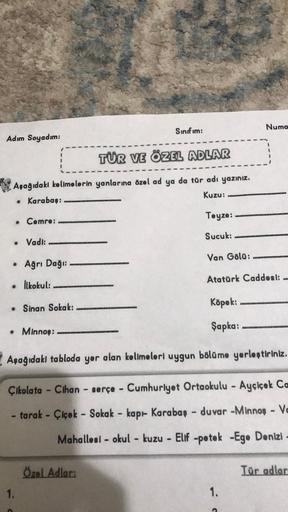 Adım Soyadım: Sınıfım: Numa
TÜR VE ÖZEL ADLAR
Aşağıdaki kelimelerin yanlarına özel ad ya da tür adı yazınız.
• Karabaş: Kuzu:
• Cemre: Teyze:
• Vadi: Sucuk:
• Ağrı Dağı: Van Gölü:
• İlkokul: Atatürk Caddesi:
• Sinan Sokak: Köpek:
• Minnoş: Şapka:
Aşağıdaki tabloda yer alan kelimeleri uygun bölüme yerleştiriniz.
Çikolata - Cihan - serçe - Cumhuriyet Ortaokulu - Ayçiçek Ca
- tarak - Çiçek - Sokak - kapı- Karabaş - duvar -Minnoş - Va
Mahallesi - okul - kuzu - Elif -petek -Ege Denizi -
Özel Adlar: Tür adlar
1. 1.